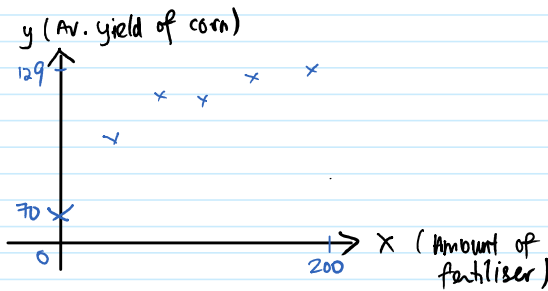 y (Av. yield of corn)
129
70
0
200
x (Amount of
fertiliser)